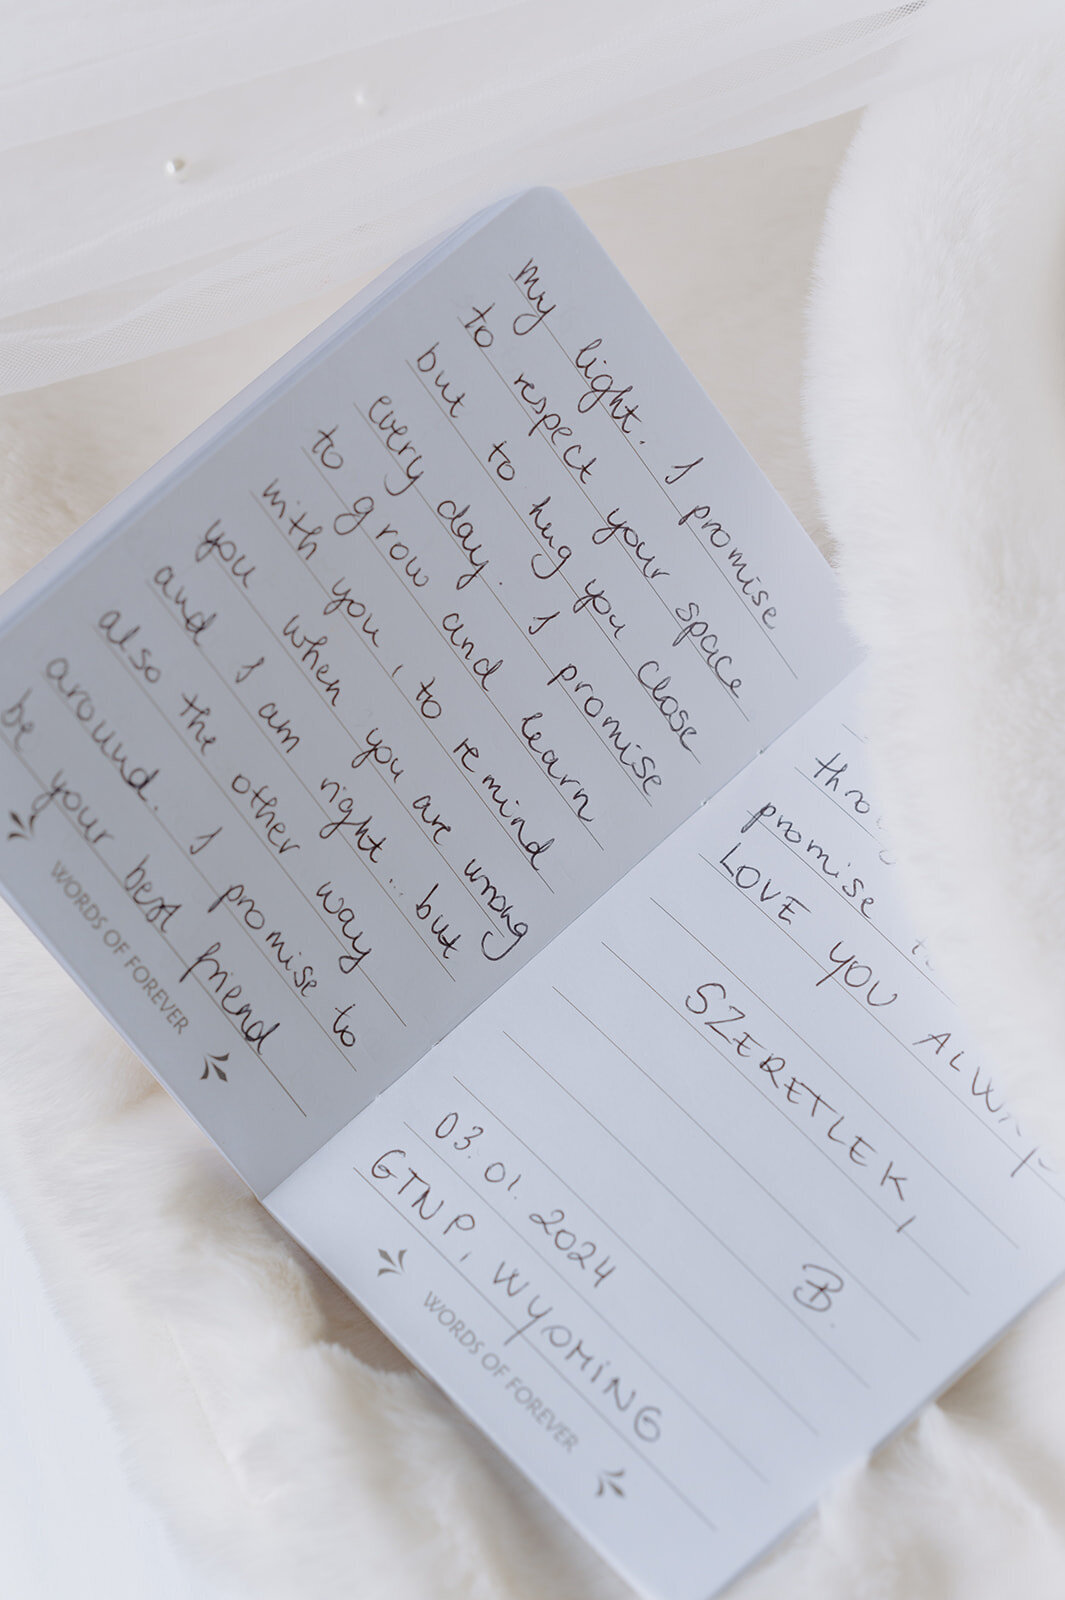 my light. I promise
to respect your space
but to hug you close
every day. I promise
to grow and learn
with you, to remind
you when you are wrong
and I am right... but
also the other way
around. I promise to
be your best friend
WORDS OF FOREVER
promise
LOVE YOU
SZERETLEK,
B.
03.01.2024
GTNP, WYOMING
WORDS OF FOREVER